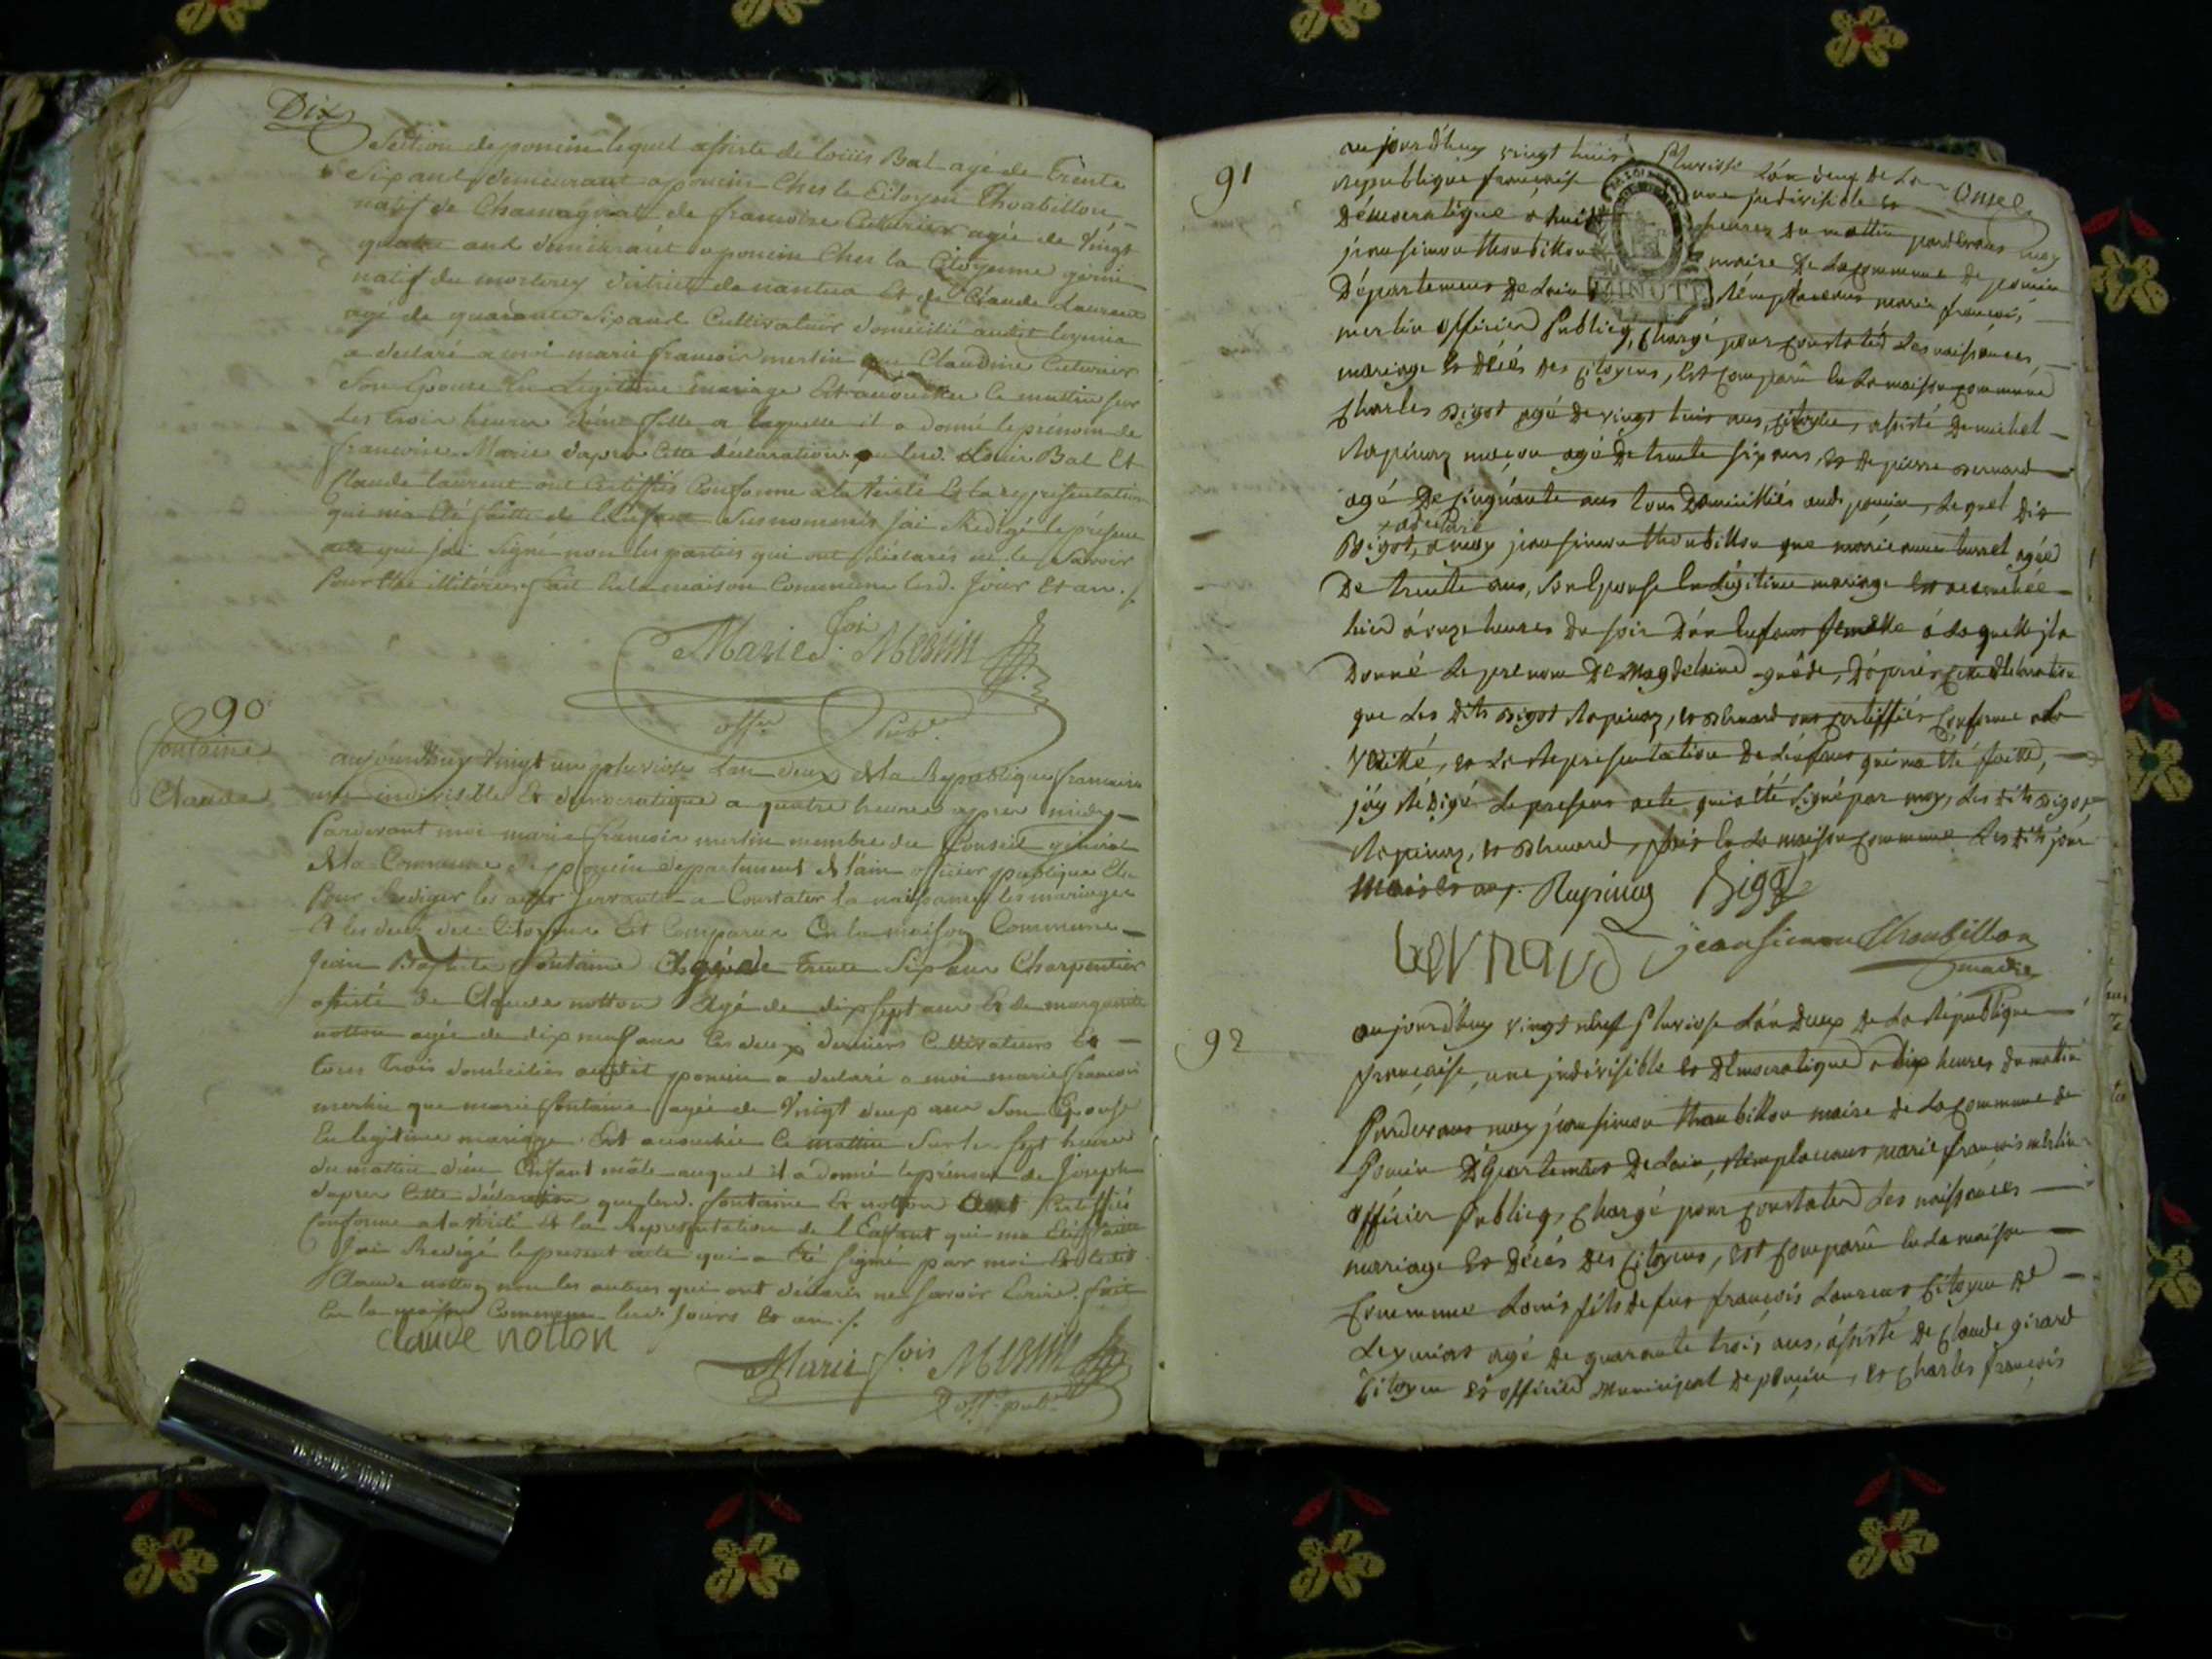 Dix
Section de poncin lequel assisté de loüis Bal agé de Trente
Six ans demeurant a poncin Ches le Citoyen Thoubillon
natif de Chamagnat de francoise Cuturier agée de Vingt
quatre ans demeurant a poncin Ches la Citoyenne
natif du mortorey district de nantua Et de Claude Laurent
agé de quarante Six ans Cultivateur domicilié audit
a declaré a moi marie francois merlin que Claudine Cuturier
Son Epouse En Legitime mariage Est accouchée Ce mattin sur
Les trois heures d'une fille a laquelle il a donné le prénom de
francoise Marie dapres Cette déclaration que lesd. Louis Bal Et
Claude laurent ont Certiffiés Conforme a la Verité Et la representation
qui ma été faitte de l'Enfant Susnommée jai Redigé le présent
acte que jai Signé non les parties qui ont déclarés ne le Savoir
Pour Etre illiterés fait En la maison Commune lesd. Jour Et an ./.
Marie fois Merlin
offier Pub.
90
fontaine
Claude
aujourdhuy Vingt un pluviose Lan deux de la Republique francaise
une indivisible Et democratique a quatre heures apres midy
Pardevant moi marie francois merlin membre du Conseil général
de la Commune de poncin departement de l'ain officier publique Elu
Pour Rediger les actes Servants a Constater la naissance les mariages
et les deces des Citoyens Est Comparu En la maison Commune
Jean Baptiste fontaine Agé de Trente Six ans Charpentier
assisté de Claude notton Agé de dix sept ans Et de marguerite
notton agée de dix neuf ans les deux derniers Cultivateurs Et
tous Trois domiciliés audit poncin a declaré a moi marie francois
merlin que marie fontaine agée de Vingt deux ans Son Epouse
En legitime mariage Est accouchée Ce mattin Sur les Sept heures
du mattin d'un Enfant mâle auquel il a donné le prénom de Joseph
dapres Cette déclaration que lesd. fontaine Et notton Ont Certiffiés
Conforme a la Verité Et la Representation de l'Enfant qui ma Eté faitte
Jai Redigé le present acte qui a Eté Signé par moi Et ledit
Claude notton non les autres qui ont déclarés ne Savoir Ecrire fait
En la maison Commune lesd. jours Et an ./.
claude notton
Marie fois Merlin
off. pub.
Onze
91
aujourdhuy vingt huit Pluviose Lán deux de La
republique francaise une jndivisible et
Démocratique a huit heures du mattin pardevans moy
jean simon thoubillon maire de La commune de poncin
Département de Lain Remplacans marie françois
MINUTE
merlin officier Publicq, Chargé pour Constater Les naissances,
mariage et décés des Citoyens, Est Comparû En La maison Commune
Charles Bigot agé de vingt huit ans, Citoyen, assisté de michel
Rapinoz maçon agé de trente six ans, et de pierre Bernard
agé de Cinquante ans tous Domicilliés audt poncin, Lequel dit
a declaré
Bigot, a moy jean simon thoubillon que marie anne turrel agée
De trente ans, son Epouse En Légitime mariage Est accouchée
hier à onze heures du soir d'ún Enfans femelle à Laquelle jl a
Donné Le prenom de Magdelaine, D'áprés Cette déclaration
que Les dits Bigot Rapinoz, et Bernard ont Certiffiés Conforme a La
Verité, et La Representation de L'énfans qui ma êté faitte,
j'áy Redigé Le presens acte qui a êté signé par moy, Les dits Bigot,
Rapinoz, et Bernard, fait En La maison Commune Les dits jour
mois et an ./. Rapinoz Bigot
bernard jean simon Thoubillon
maire
92
aujourd'huy vingt neuf Pluviose L'án deux de La République
française, une jndivisible et Démocratique a dix heures du matin
Pardevans moy jean simon thoubillon maire de La Commune de
Poncin Département de Lain, Remplacans marie françois merlin
officier Publicq, Chargé pour Constater Les naissances
mariage et décés des Citoyens, est Comparû En La maison
Commune Louis fils de fut françois Laurens Citoyen de
agé de quarante trois ans, ássisté de Claude girard
Citoyen et officier Municipal de poncin, et Charles françois